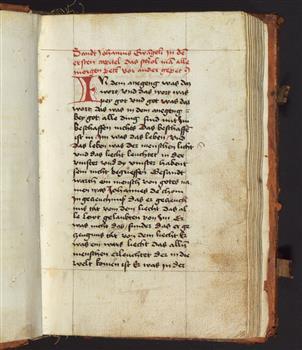 Sandt Johannes Ewangeli in de
ersten Capitel das sprich man alle
morgen
In dem anegeng was das
wort, vnd das wort was
vor got vnd got was das
wort das was in dem anegeng
bei got alle ding sind mit im
beschaffen nichts das beschaffē
ist in Im was das leben vnd
das leben was der menschen licht
vnd das liecht leuchtet in der
vinster vnd dy vinster habent
sein nicht begreiffen Gesandt
warth ein mensch von gotes na
men was Johannes der chom
in gezeuchnuss das er gezeuch
nuss tät von dem liecht das al
le leüt gelaubten von Im Er
was nicht das sunder das er ge
zeugnuss tät von dem liecht Es
was ein wars liecht das alln
menschen erleuchtet der in die
welt komen ist Er was in der